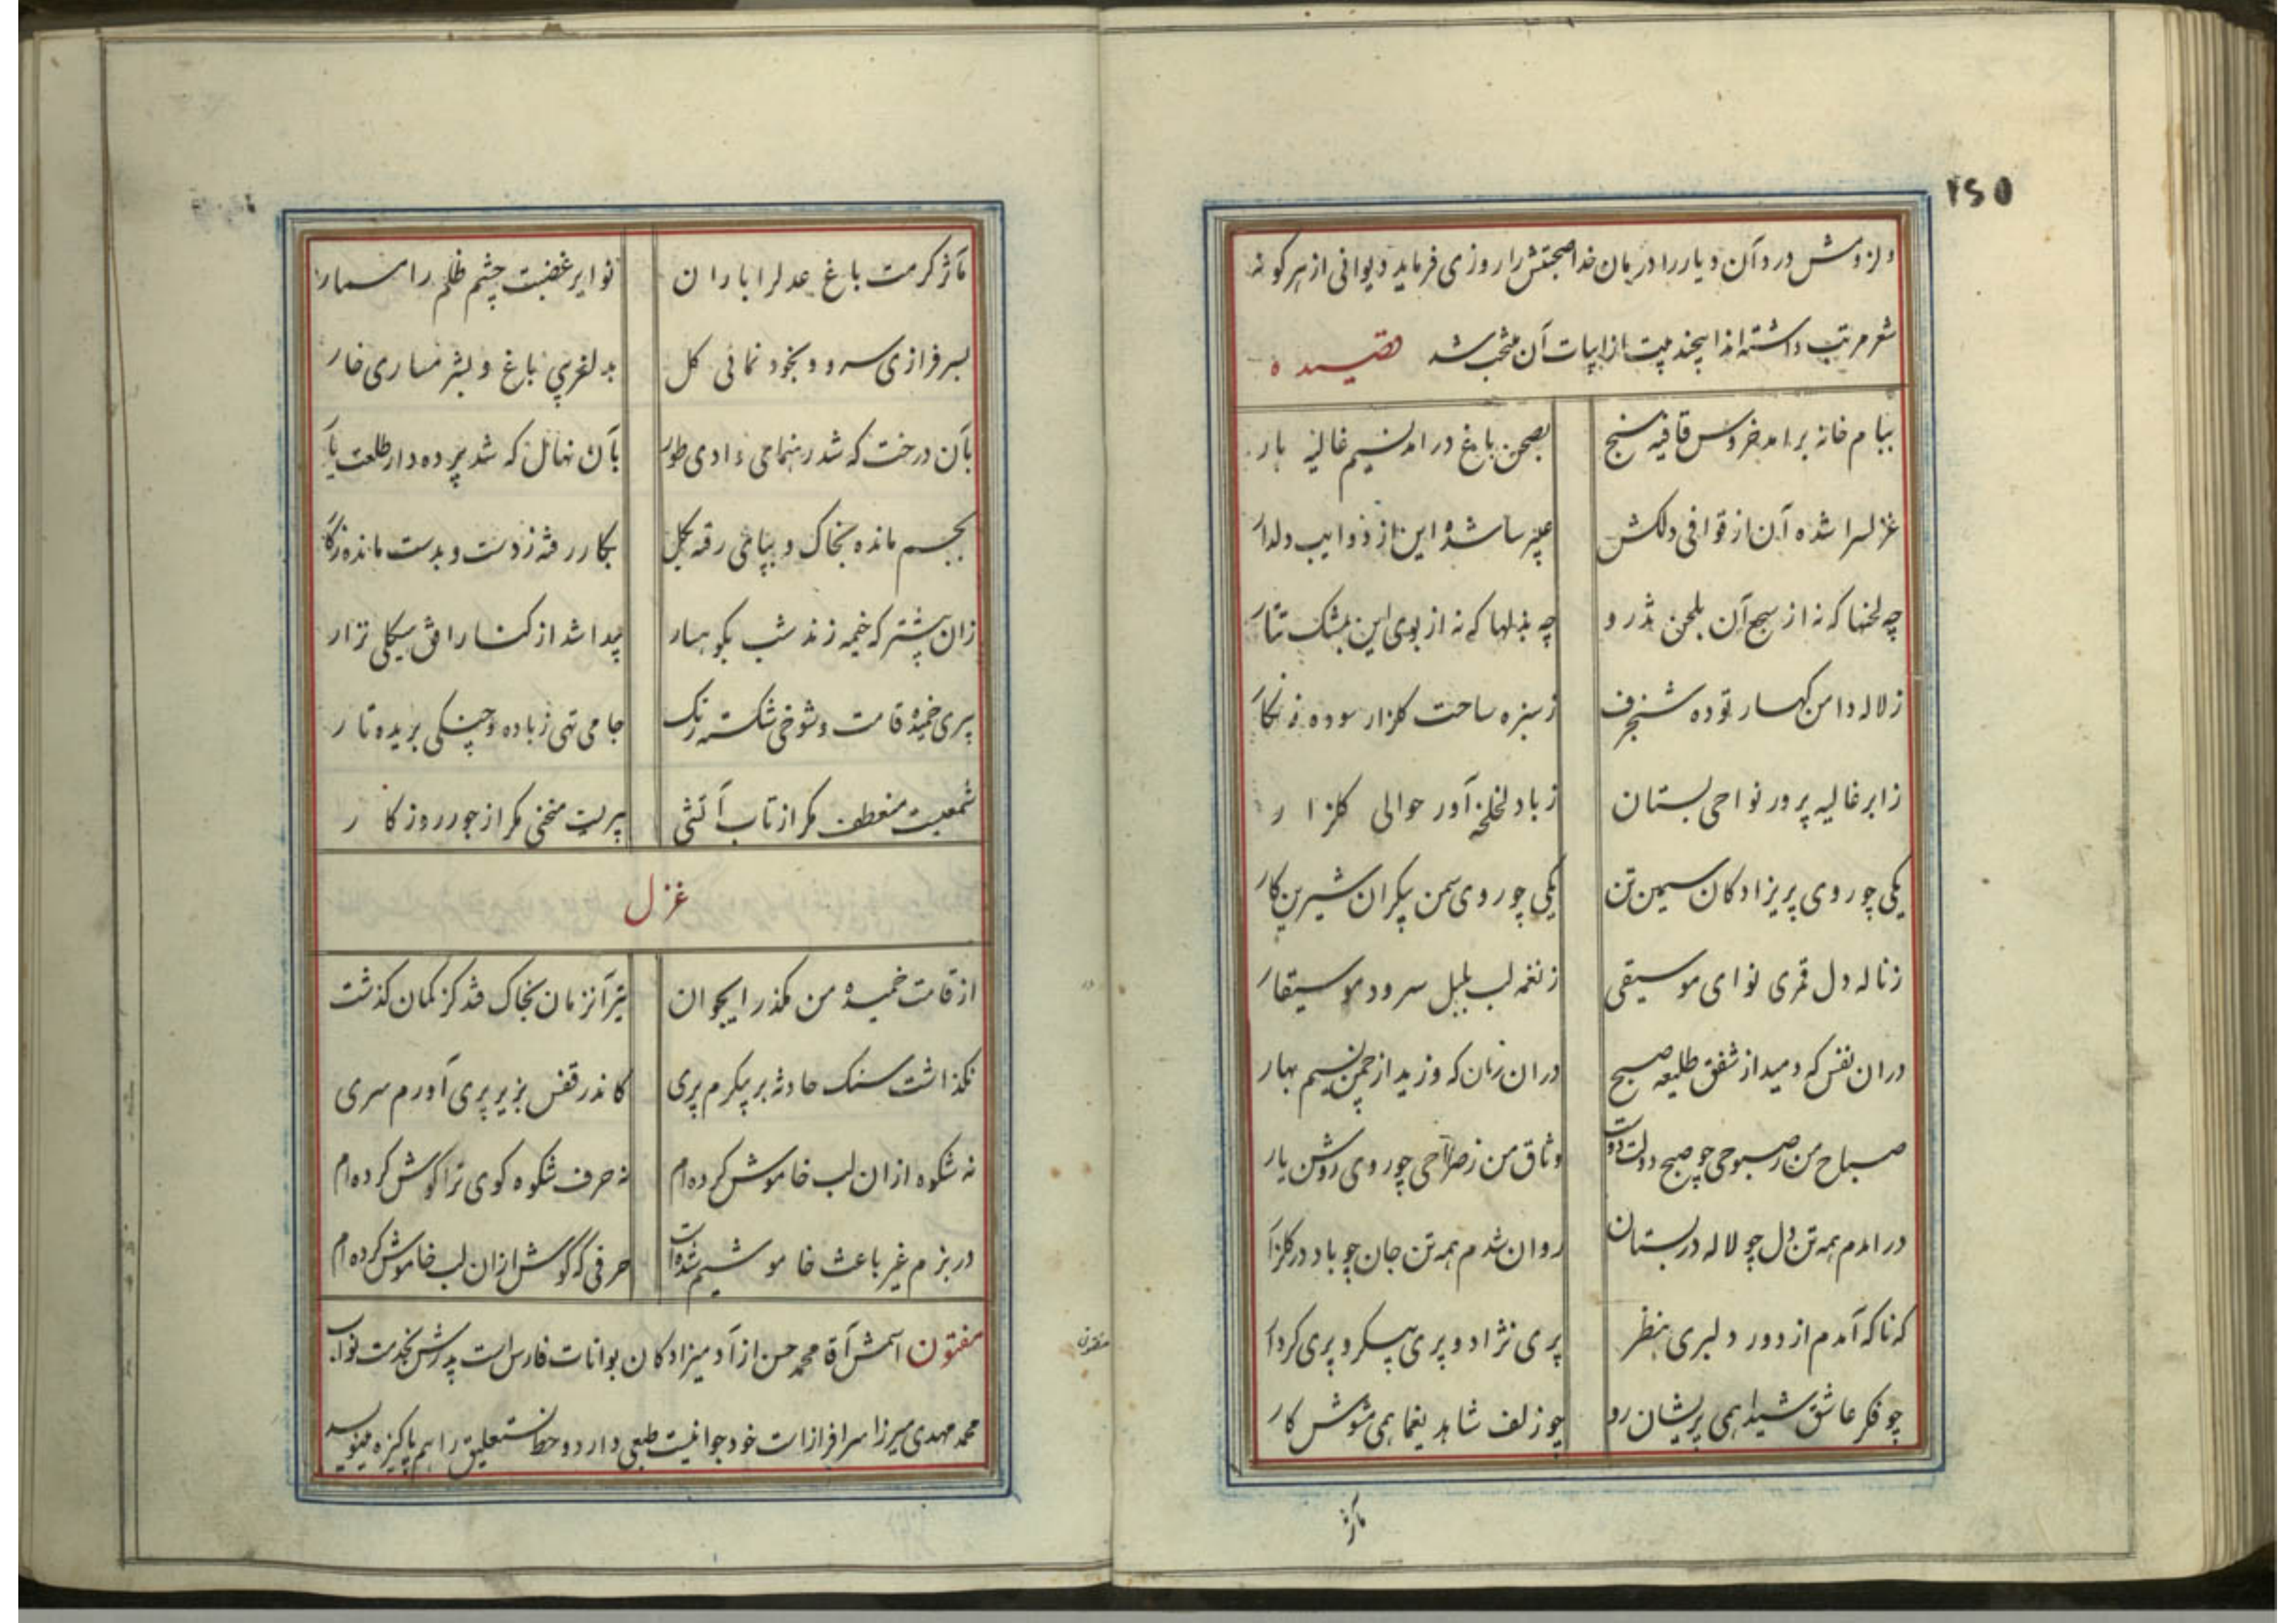 ۲۶۵
شعر مرتب داشته اند اینچند بیت از ابیات آن منتخب شد قصیده
ببام خانه برامد خروس قافیه سنج بصحن باغ درامد نسیم غالیه بار
غزلسرا شده آن از قوافی دلکش عبیرسا شده این از ذوایب دلدار
چه لحنها که نه از سجع آن بلحن تذرو چه بذلها که نه از بوی این بمشک تتار
ز لاله دامن کهسار توده شنجرف ز سبزه ساحت کلزار سوده زنکار
ز ابر غالیه پرور نواحی بستان ز باد لخلخه آور حوالی کلزار
یکی چو روی پریزادکان سیمین تن یکی چو روی سمن پیکران شیرین کار
ز ناله دل قمری نوای موسیقی ز نغمه لب بلبل سرود موسیقار
دران نفس که دمید از شفق طلیعه صبح دران زمان که وزید از چمن نسیم بهار
صباح من ز صبوحی چو صبح دولت دوست وثاق من ز صراحی چو روی روشن یار
درامدم همه تن دل چو لاله در بستان روان شدم همه تن جان چو باد در کلزار
که ناکه آمدم از دور دلبری بنظر پری نژاد و پری پیکر و پری کردار
چو فکر عاشق شیدا همی پریشان رو چو زلف شاهد یغما همی مشوش کار
مآثر
مآثر کرمت باغ عدلرا باران نوایر غضبت چشم ظلم را مسمار
بسرفرازی سرو و بخودنمائی کل بدلفریبی باغ و بشرمساری خار
بآن درخت که شد رهنمای وادی طور بآن نهال که شد پرده دار طلعت یار
بجسم مانده بخاک و بپای رفته بکل بکار رفته ز دست و بدست مانده ز کار
زان پیشتر که خیمه زند شب بکوهسار پیدا شد از کنار افق پیکلی نزار
پیری خمیده قامت و شوخی شکسته رنک جامی تهی ز باده و چنکی بریده تار
شمعیست منعطف مکر از تاب آتشی پیریست منحنی مکر از جور روزکار
غزل
از قامت خمیده من مکذر ایجوان تیر آنزمان بخاک فتد کز کمان کذشت
نکذاشت سنک حادثه بر پیکرم پری کاندر قفس بزیر پری آورم سری
نه شکوه ازان لب خاموش کرده ام نه حرف شکوه کوی ترا گوش کرده ام
در بزم غیر باعث خاموشیم شده است حرفی که گوش ازان لب خاموش کرده ام
مفتون اسمش آقا محمد حسن از آدمیزادکان بوانات فارس است پدرش بخدمت نواب
محمد مهدی میرزا سرافراز است خود جوانیست طبعی دارد و خط نستعلیق را هم پاکیزه مینویسد
مفتون